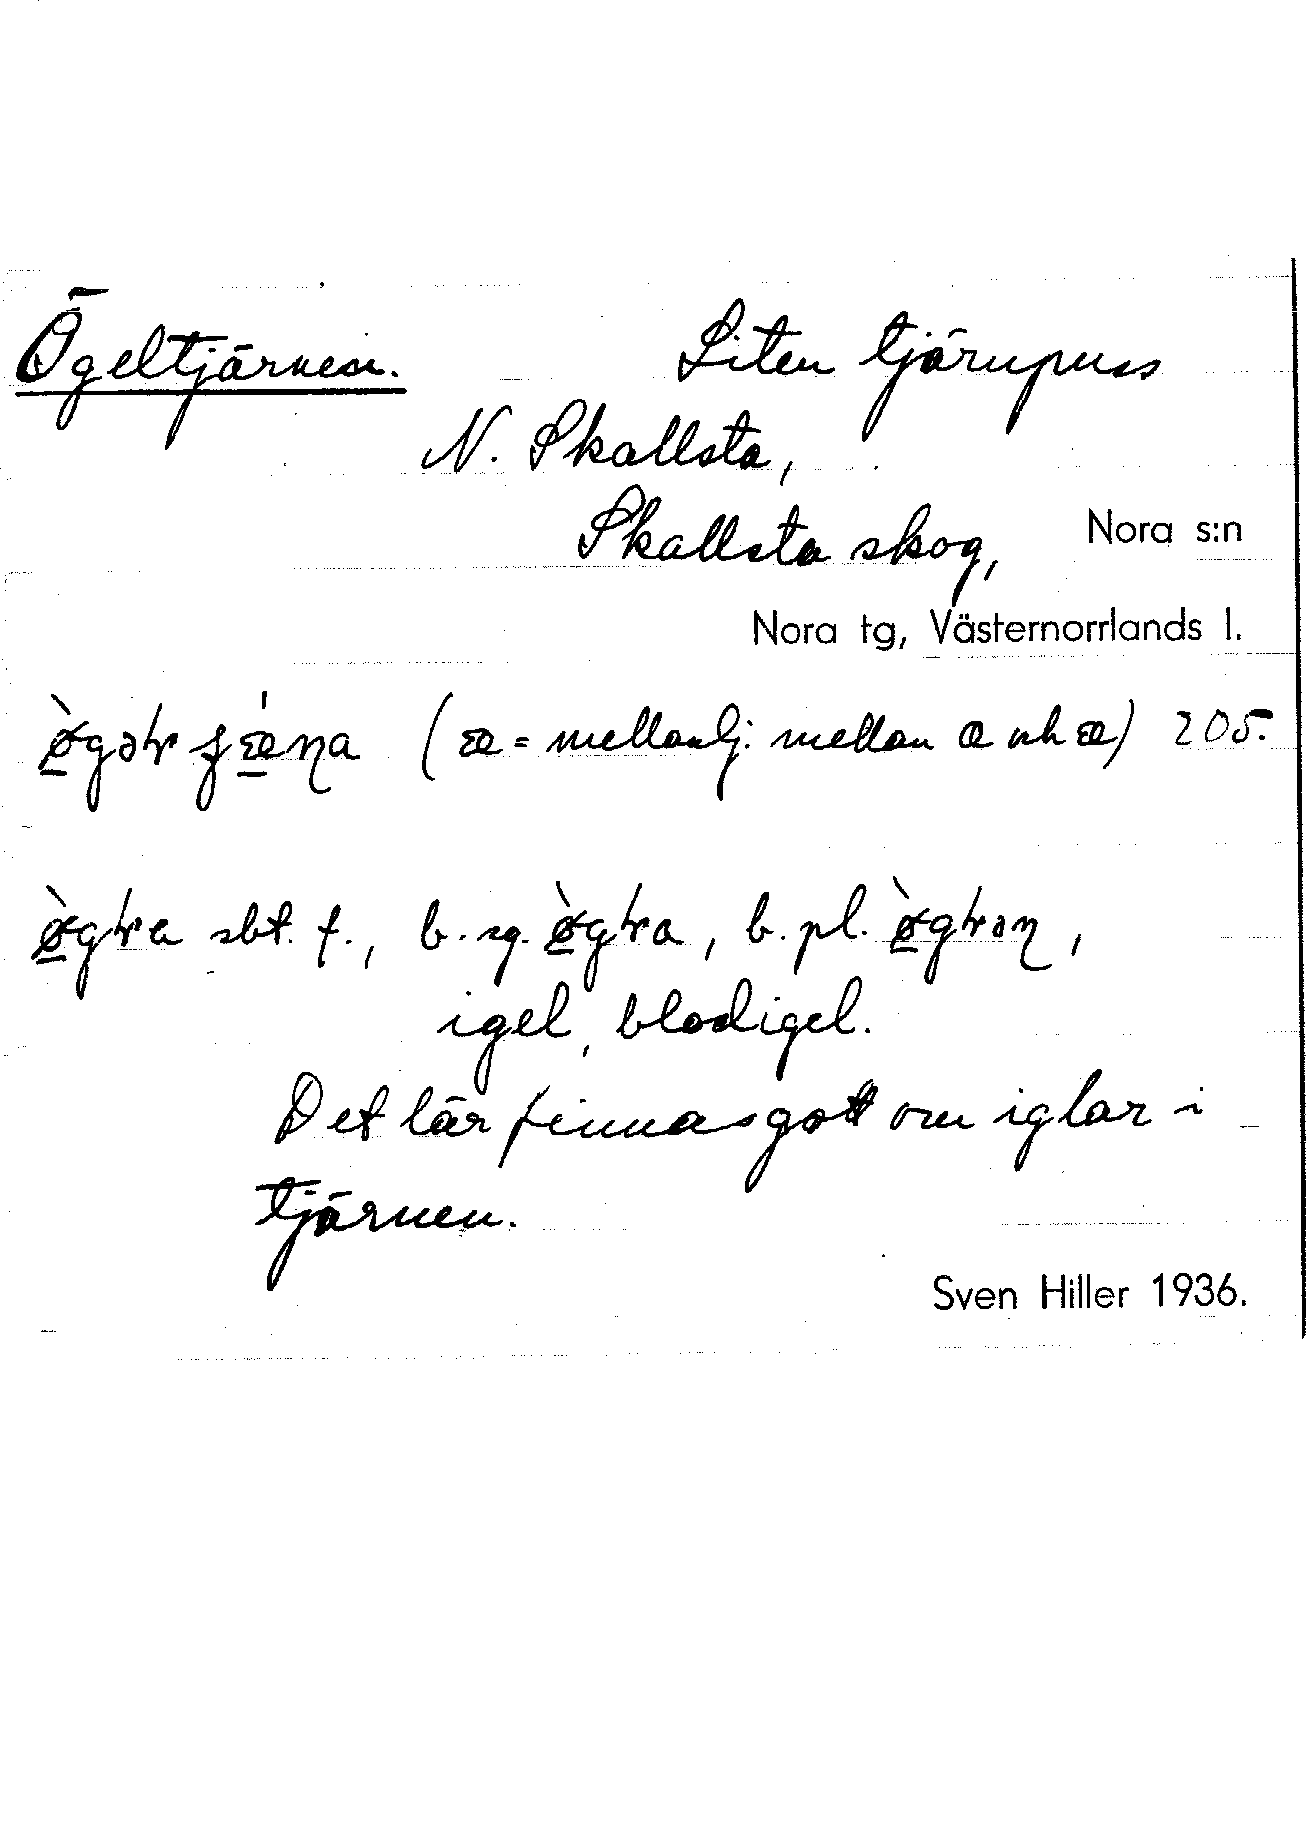 Ögeltjärnen. Liten tjärnpuss
N. Skallsta,
Skallsta skog, Nora s:n
Nora tg, Västernorrlands l.
(æ = mellanlj. mellan a och æ) 205.
sbt. f., b. sg. , b. pl. ,
igel, blodigel.
Det lär finnas gott om iglar i
tjärnen.
Sven Hiller 1936.